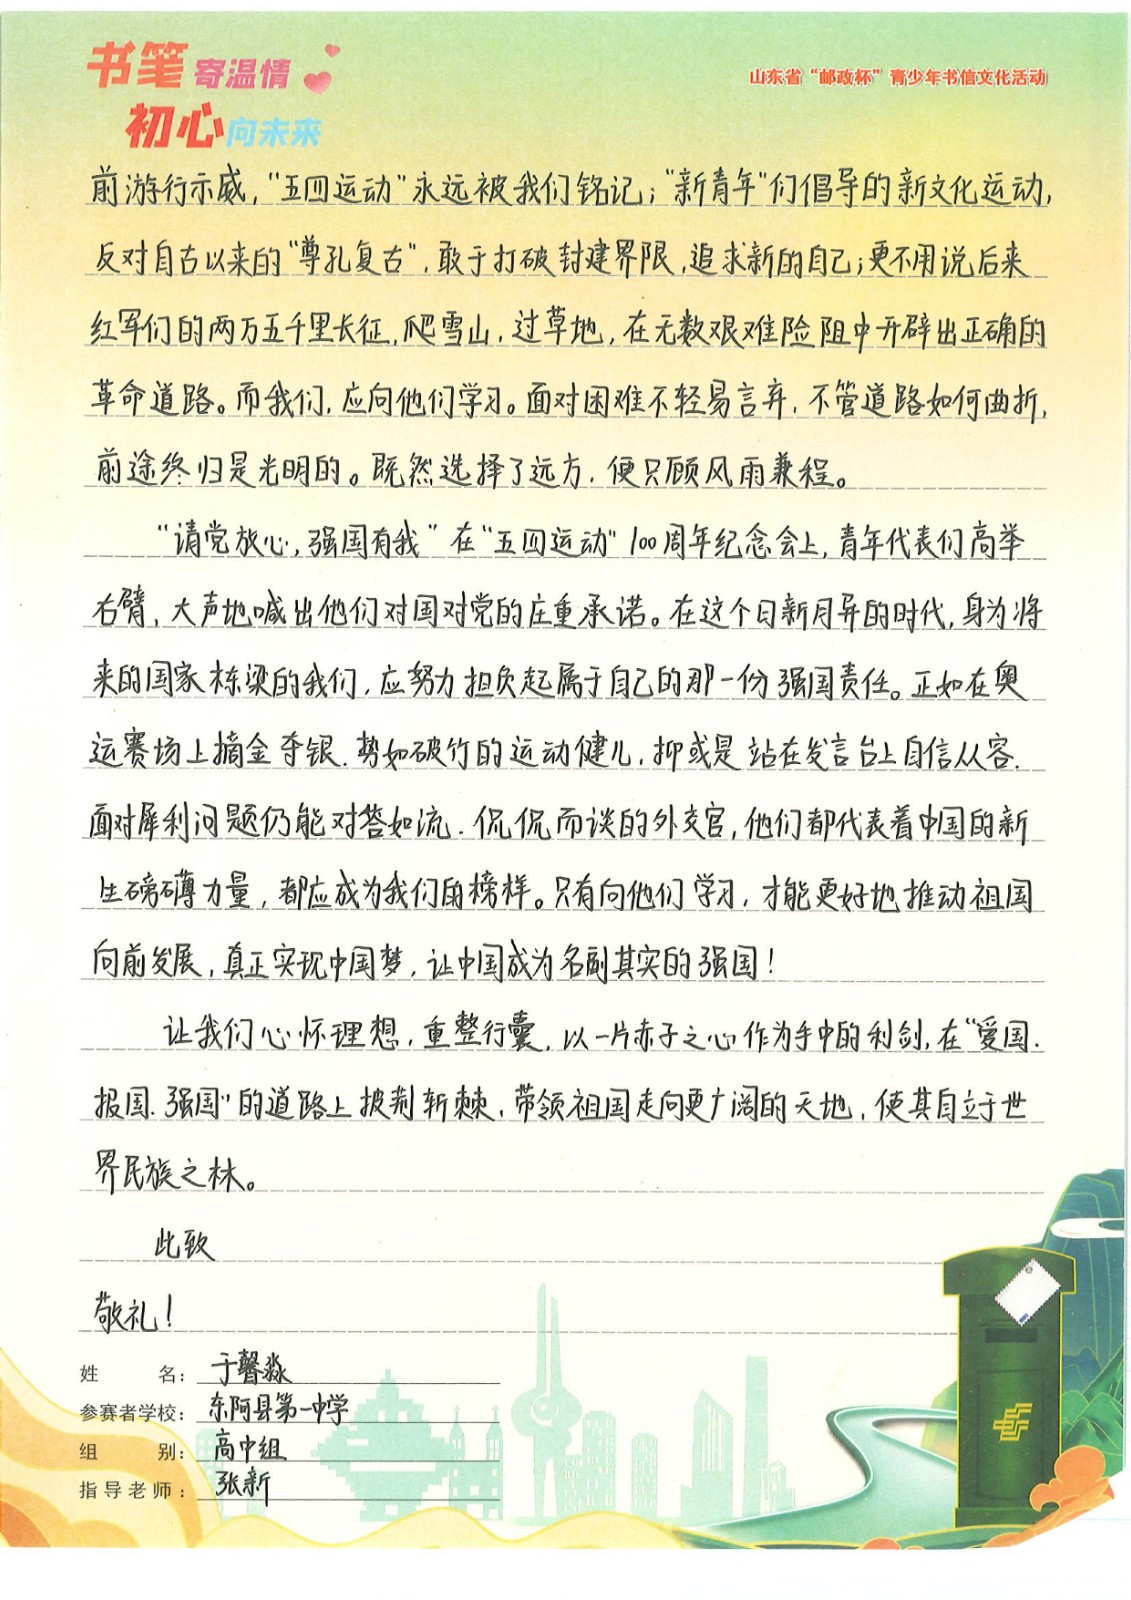 书笔寄温情
初心向未来
山东省“邮政杯”青少年书信文化活动
前游行示威，“五四运动”永远被我们铭记；“新青年”们倡导的新文化运动，
反对自古以来的“尊孔复古”，敢于打破封建界限，追求新的自己；更不用说后来
红军们的两万五千里长征，爬雪山，过草地，在无数艰难险阻中开辟出正确的
革命道路。而我们，应向他们学习。面对困难不轻易言弃，不管道路如何曲折，
前途终归是光明的。既然选择了远方，便只顾风雨兼程。
“请党放心，强国有我”在“五四运动”100周年纪念会上，青年代表们高举
右臂，大声地喊出他们对国对党的庄重承诺。在这个日新月异的时代，身为将
来的国家栋梁的我们，应努力担负起属于自己的那一份强国责任。正如在奥
运赛场上摘金夺银、势如破竹的运动健儿，抑或是站在发言台上自信从容、
面对犀利问题仍能对答如流、侃侃而谈的外交官，他们都代表着中国的新
生磅礴力量，都应成为我们的榜样。只有向他们学习，才能更好地推动祖国
向前发展，真正实现中国梦，让中国成为名副其实的强国！
让我们心怀理想，重整行囊，以一片赤子之心作为手中的利剑，在“爱国、
报国、强国”的道路上披荆斩棘，带领祖国走向更广阔的天地，使其自立于世
界民族之林。
此致
敬礼！
姓名：于馨淼
参赛者学校：东阿县第一中学
组别：高中组
指导老师：张新